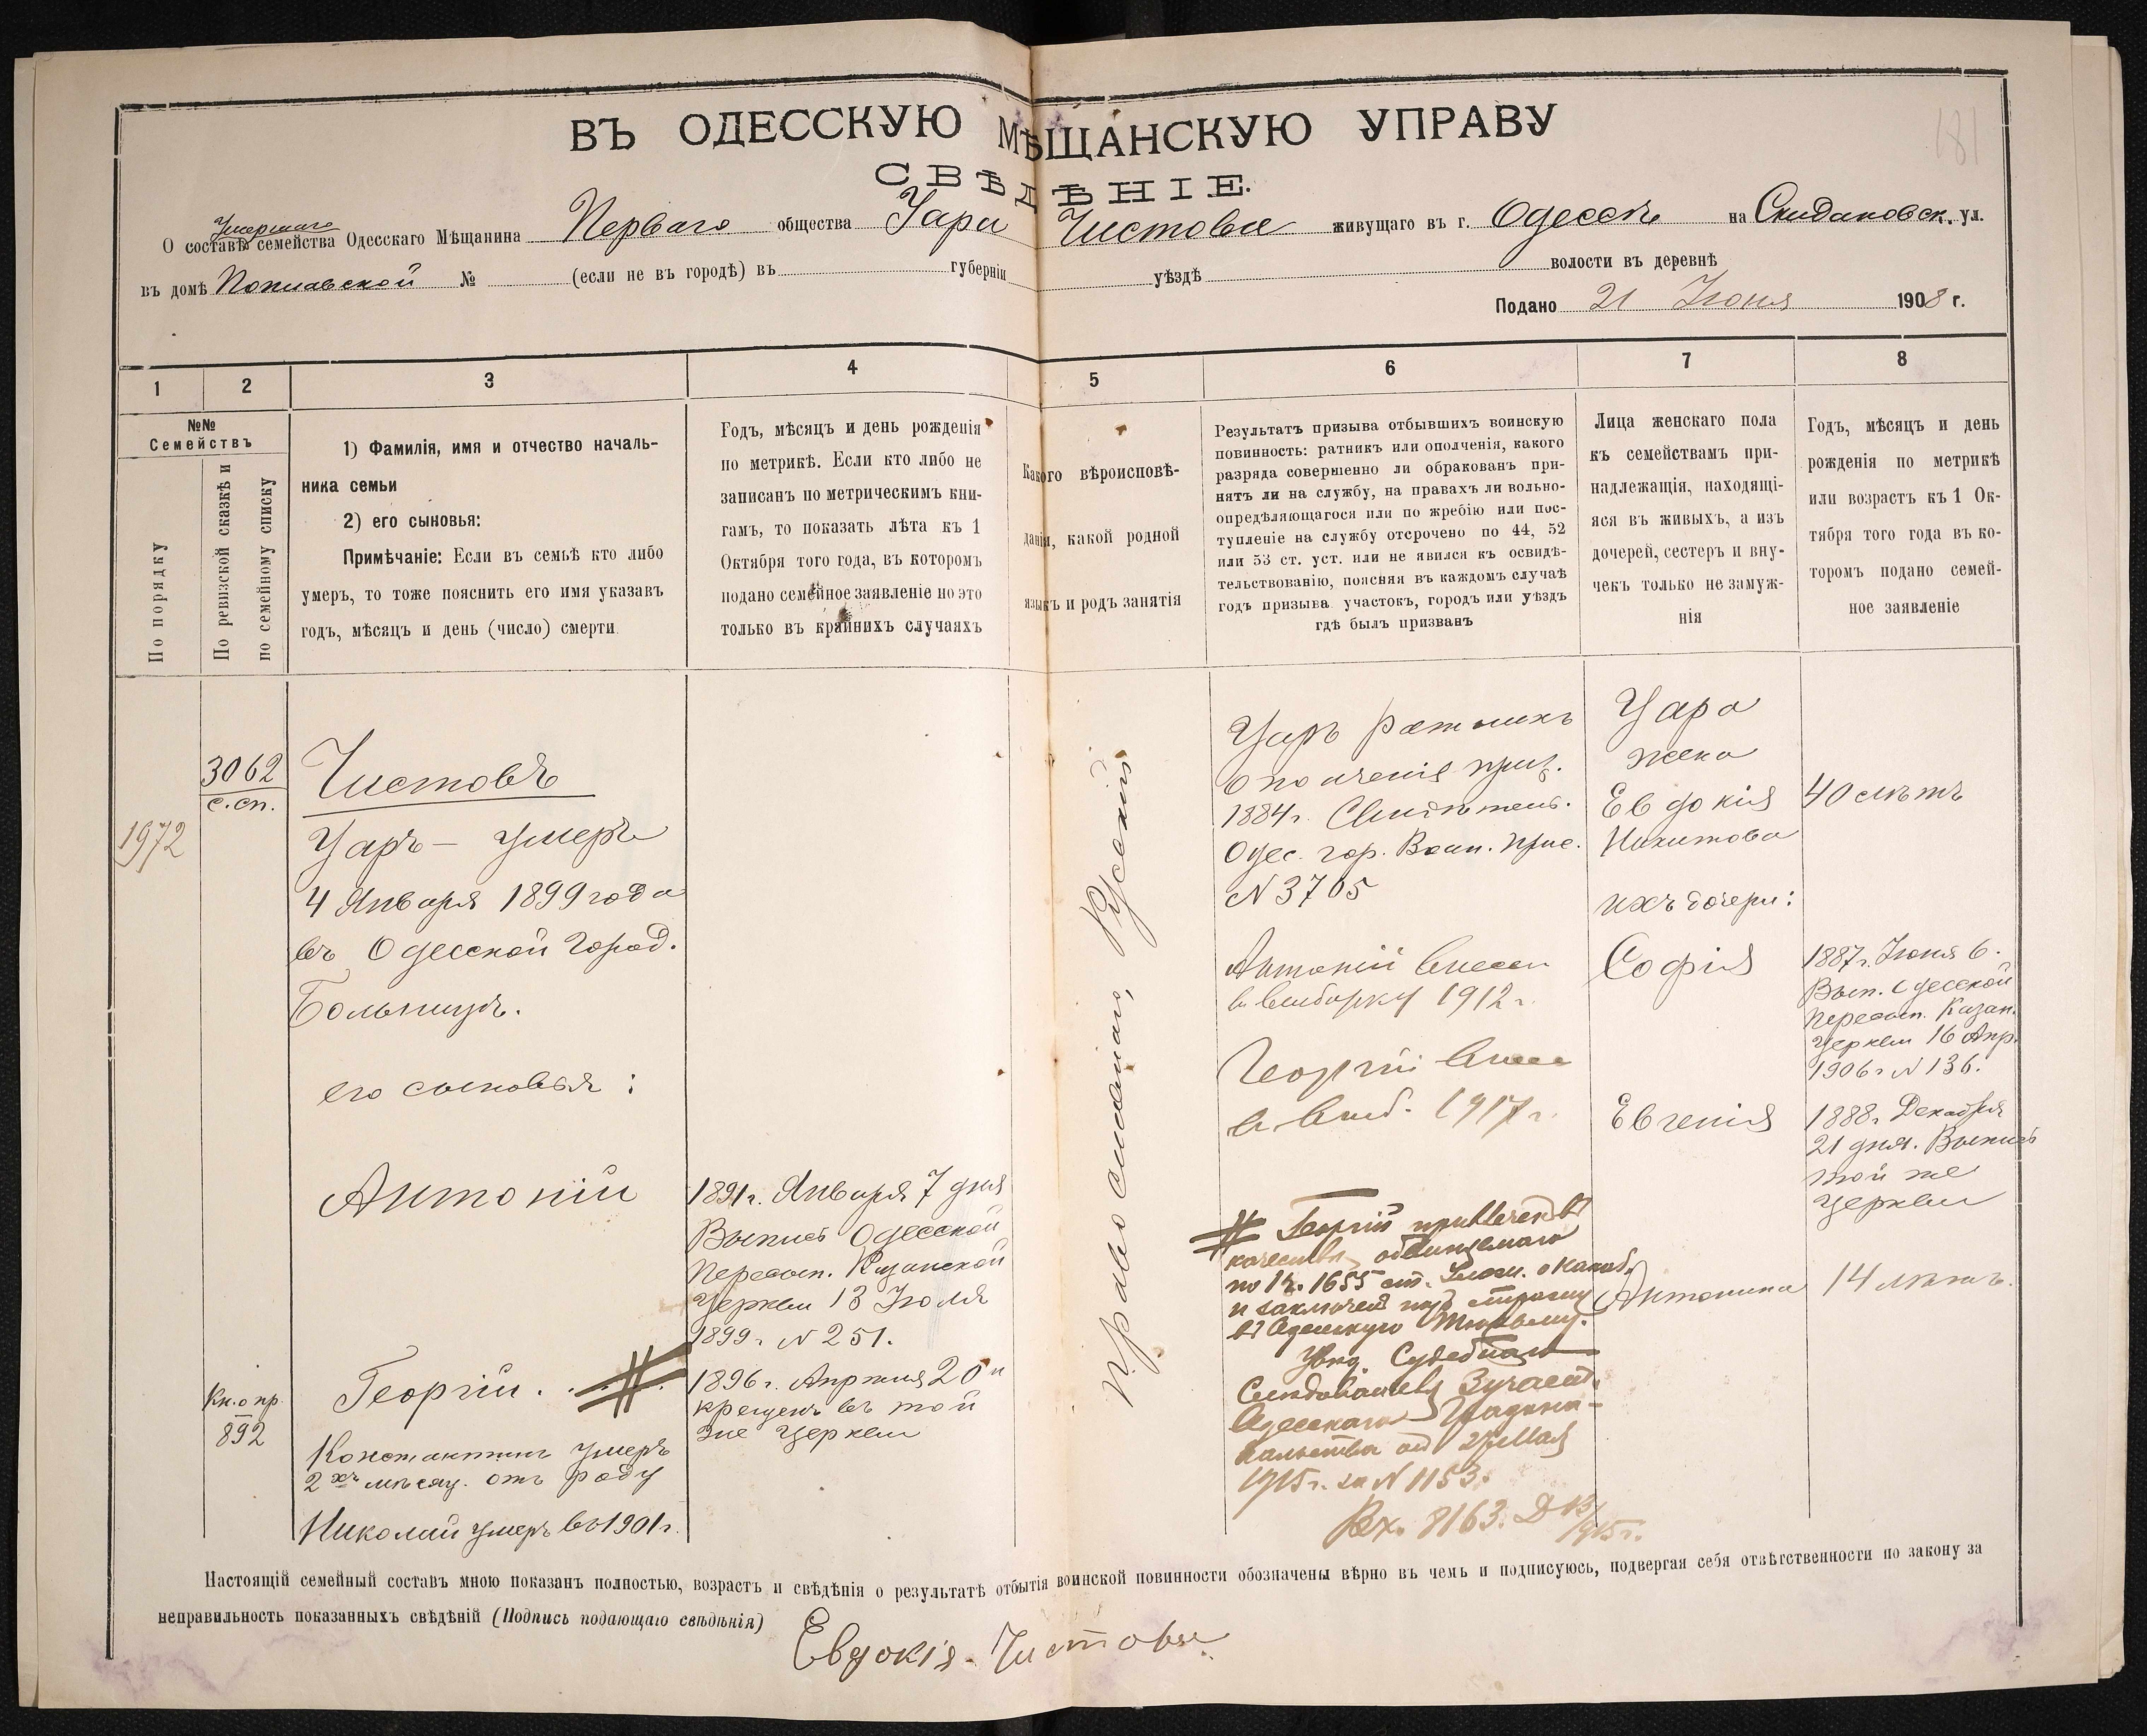 ВЪ ОДЕССКУЮ МѢЩАНСКУЮ УПРАВУ
181
СВѢДѢНІЕ.
Умершаго
О составѣ семейства Одесскаго Мѣщанина Перваго общества Уара Чистова живущаго въ г. Одессѣ на Скидановск. ул.
въ домѣ № (если не въ городѣ) въ губерніи уѣздѣ волости въ деревнѣ
Подано 21 Іюня 1908 г.
1 2 3 4 5 6 7 8
№№
Семействъ
По порядку
По ревизской сказкѣ и
по семейному списку
1) Фамилія, имя и отчество началь-
ника семьи
2) его сыновья:
Примѣчаніе: Если въ семьѣ кто либо
умеръ, то тоже пояснить его имя указавъ
годъ, мѣсяцъ и день (число) смерти
Годъ, мѣсяцъ и день рожденія
по метрикѣ. Если кто либо не
записанъ по метрическимъ кни-
гамъ, то показать лѣта къ 1
Октября того года, въ которомъ
подано семейное заявленіе но это
только въ крайнихъ случаяхъ
Какого вѣроисповѣ-
данія, какой родной
языкъ и родъ занятія
Результатъ призыва отбывшихъ воинскую
повинность: ратникъ или ополченія, какого
разряда совершенно ли обракованъ при-
нятъ ли на службу, на правахъ ли вольно-
опредѣляющагося или по жребію или пос-
тупленіе на службу отсрочено по 44, 52
или 53 ст. уст. или не явился къ освидѣ-
тельствованію, поясняя въ каждомъ случаѣ
годъ призыва участокъ, городъ или уѣздъ
гдѣ былъ призванъ
Лица женскаго пола
къ семействамъ при-
надлежащія, находящі-
яся въ живыхъ, а изъ
дочерей, сестеръ и вну-
чекъ только не замуж-
нія
Годъ, мѣсяцъ и день
рожденія по метрикѣ
или возрастъ къ 1 Ок-
тября того года въ ко-
торомъ подано семей-
ное заявленіе
1972
3062
с.сп.
Чистовъ
Уаръ - умеръ
4 Января 1899 года
въ Одесской Город.
Больницѣ.
его сыновья:
Антоній
1891 г. Января 7 дня
Выпись Одесской
Пересып. Казанской
Церкви 13 Іюля
1899 г. N 251.
Кн. о пр.
892
Георгій . . #.
1896 г. Апрѣля 20
крещенъ въ той
же Церкви
Константинъ умеръ
2хъ мѣсяц. отъ роду
Николай умеръ въ 1901 г.
Православнаго, Русскій
Уаръ ратникъ
ополченія приз.
1884 г. Свидѣтель.
Одес. гор. Воин. Прис.
N 3705
Антоній внесен
в выборку 1912 г.
Георгій внес
в выб. 1917 г.
# Георгій привлеченъ въ
качествѣ обвиняемаго
по 1 ч. 1655 ст. Улож. о наказ.
и заключенъ подъ стражу
въ Одесскую Тюрьму.
Увѣд. Судебнаго
Слѣдователя 3 участ.
Одесскаго Градона-
чальства от Мая
1915 г. за N 1153.
Вх. 8163. 1915 г.
Уара
жена
Евдокія
Никитова
40 лѣтъ
ихъ дочери:
Софія
1887 г. Іюня 6.
Вып. Одесской
Пересып. Казан.
Церкви 16 Апр.
1906 г N 136.
Евгенія
1888 г. Декабря
21 дня. Выпись
той же
Церкви
Антонина
14 лѣтъ.
Настоящій семейный составъ мною показанъ полностью, возрастъ и свѣдѣнія о результатѣ отбытія воинской повинности обозначены вѣрно въ чемъ и подписуюсь, подвергая себя отвѣтственности по закону за
неправильность показанныхъ свѣдѣній (Подпись подающаго свѣдѣнія)
Евдокія Чистова.